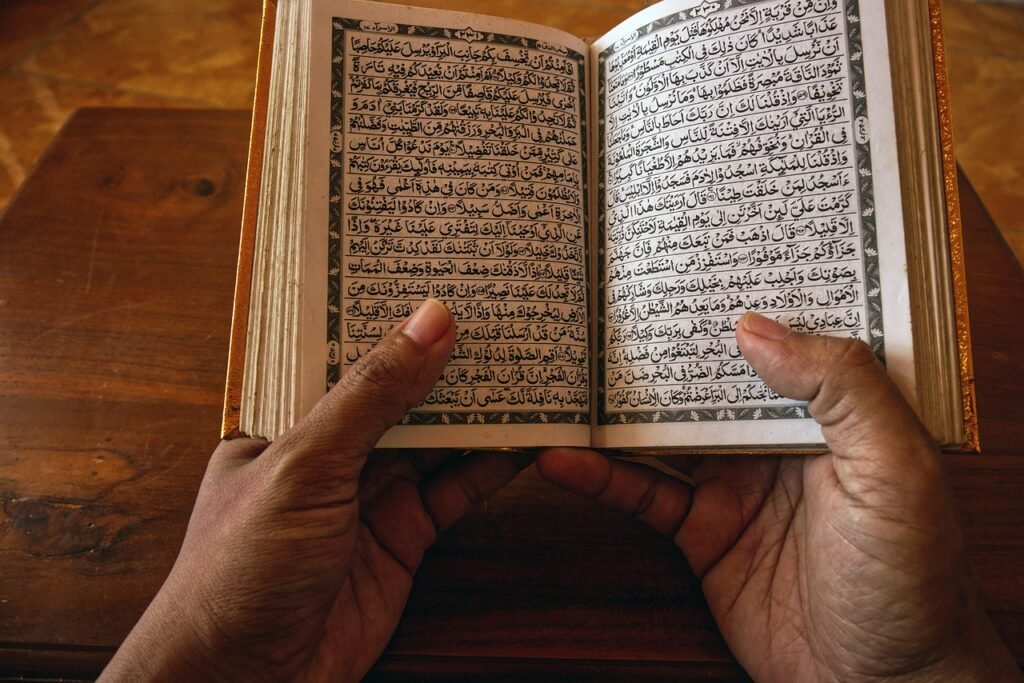 وَاِنْ مِّنْ قَرْيَةٍ اِلَّا نَحْنُ مُهْلِكُوْهَا قَبْلَ يَوْمِ الْقِيٰمَةِ
عَذَابًا شَدِيْدًا كَانَ ذٰلِكَ فِى الْكِتٰبِ مَسْطُوْرًا
اَنْ نُّرْسِلَ بِالْاٰيٰتِ اِلَّا اَنْ كَذَّبَ بِهَا الْاَوَّلُوْنَ وَاٰتَيْنَا
ثَمُوْدَ النَّاقَةَ مُبْصِرَةً فَظَلَمُوْا بِهَا وَمَا نُرْسِلُ بِالْاٰيٰتِ اِلَّا
تَخْوِيْفًا وَاِذْ قُلْنَا لَكَ اِنَّ رَبَّكَ اَحَاطَ بِالنَّاسِ وَمَا جَعَلْنَا
الرُّءْيَا الَّتِىْ اَرَيْنٰكَ اِلَّا فِتْنَةً لِّلنَّاسِ وَالشَّجَرَةَ الْمَلْعُوْنَةَ
فِى الْقُرْاٰنِ وَنُخَوِّفُهُمْ فَمَا يَزِيْدُهُمْ اِلَّا طُغْيَانًا كَبِيْرًا
وَاِذْ قُلْنَا لِلْمَلٰٓئِكَةِ اسْجُدُوْا لِاٰدَمَ فَسَجَدُوْٓا اِلَّآ اِبْلِيْسَ
ءَاَسْجُدُ لِمَنْ خَلَقْتَ طِيْنًا قَالَ اَرَءَيْتَكَ هٰذَا الَّذِىْ
كَرَّمْتَ عَلَىَّ لَئِنْ اَخَّرْتَنِ اِلٰى يَوْمِ الْقِيٰمَةِ لَاَحْتَنِكَنَّ
اِلَّا قَلِيْلًا قَالَ اذْهَبْ فَمَنْ تَبِعَكَ مِنْهُمْ فَاِنَّ جَهَنَّمَ
جَزَآؤُكُمْ جَزَآءً مَّوْفُوْرًا وَاسْتَفْزِزْ مَنِ اسْتَطَعْتَ مِنْهُمْ
بِصَوْتِكَ وَاَجْلِبْ عَلَيْهِمْ بِخَيْلِكَ وَرَجِلِكَ وَشَارِكْهُمْ فِى
الْاَمْوَالِ وَالْاَوْلَادِ وَعِدْهُمْ وَمَا يَعِدُهُمُ الشَّيْطٰنُ اِلَّا غُرُوْرًا
اِنَّ عِبَادِىْ لَيْسَ سُلْطٰنٌ وَكَفٰى بِرَبِّكَ وَكِيْلًا
فِى الْبَحْرِ لِتَبْتَغُوْا مِنْ فَضْلِهٖ اِنَّهٗ
مَسَّكُمُ الضُّرُّ فِى الْبَحْرِ ضَلَّ مَنْ
اِلَى الْبَرِّ اَعْرَضْتُمْ وَكَانَ الْاِنْسَانُ كَفُوْرًا
اَفَاَمِنْتُمْ اَنْ يَّخْسِفَ بِكُمْ جَانِبَ الْبَرِّ اَوْ يُرْسِلَ عَلَيْكُمْ حَاصِبًا
ثُمَّ لَا تَجِدُوْا لَكُمْ وَكِيْلًا اَمْ اَمِنْتُمْ اَنْ يُّعِيْدَكُمْ فِيْهِ تَارَةً
اُخْرٰى فَيُرْسِلَ عَلَيْكُمْ قَاصِفًا مِّنَ الرِّيْحِ فَيُغْرِقَكُمْ بِمَا كَفَرْتُمْ
ثُمَّ لَا تَجِدُوْا لَكُمْ عَلَيْنَا بِهٖ تَبِيْعًا وَلَقَدْ كَرَّمْنَا بَنِىْٓ اٰدَمَ وَ
حَمَلْنٰهُمْ فِى الْبَرِّ وَالْبَحْرِ وَرَزَقْنٰهُمْ مِّنَ الطَّيِّبٰتِ وَفَضَّلْنٰهُمْ
عَلٰى كَثِيْرٍ مِّمَّنْ خَلَقْنَا تَفْضِيْلًا يَوْمَ نَدْعُوْا كُلَّ اُنَاسٍ
بِاِمَامِهِمْ فَمَنْ اُوْتِىَ كِتٰبَهٗ بِيَمِيْنِهٖ فَاُولٰٓئِكَ يَقْرَءُوْنَ كِتٰبَهُمْ
وَلَا يُظْلَمُوْنَ فَتِيْلًا وَمَنْ كَانَ فِىْ هٰذِهٖٓ اَعْمٰى فَهُوَ فِى
الْاٰخِرَةِ اَعْمٰى وَاَضَلُّ سَبِيْلًا وَاِنْ كَادُوْا لَيَفْتِنُوْنَكَ
عَنِ الَّذِىْٓ اَوْحَيْنَآ اِلَيْكَ لِتَفْتَرِىَ عَلَيْنَا غَيْرَهٗ وَاِذًا
لَّاتَّخَذُوْكَ خَلِيْلًا وَلَوْلَآ اَنْ ثَبَّتْنٰكَ لَقَدْ كِدْتَّ تَرْكَنُ اِلَيْهِمْ
شَيْئًا قَلِيْلًا اِذًا لَّاَذَقْنٰكَ ضِعْفَ الْحَيٰوةِ وَضِعْفَ الْمَمَاتِ
ثُمَّ لَا تَجِدُ لَكَ عَلَيْنَا نَصِيْرًا وَاِنْ كَادُوْا لَيَسْتَفِزُّوْنَكَ مِنَ
الْاَرْضِ لِيُخْرِجُوْكَ مِنْهَا وَاِذًا لَّا خِلٰفَكَ اِلَّا قَلِيْلًا
سُنَّةَ مَنْ قَدْ اَرْسَلْنَا قَبْلَكَ لِسُنَّتِنَا
تَحْوِيْلًا اَقِمِ الصَّلٰوةَ لِدُلُوْكِ الشَّمْسِ
وَقُرْاٰنَ الْفَجْرِ اِنَّ قُرْاٰنَ الْفَجْرِ كَانَ
فَتَهَجَّدْ بِهٖ نَافِلَةً لَّكَ عَسٰٓى اَنْ يَّبْعَثَكَ